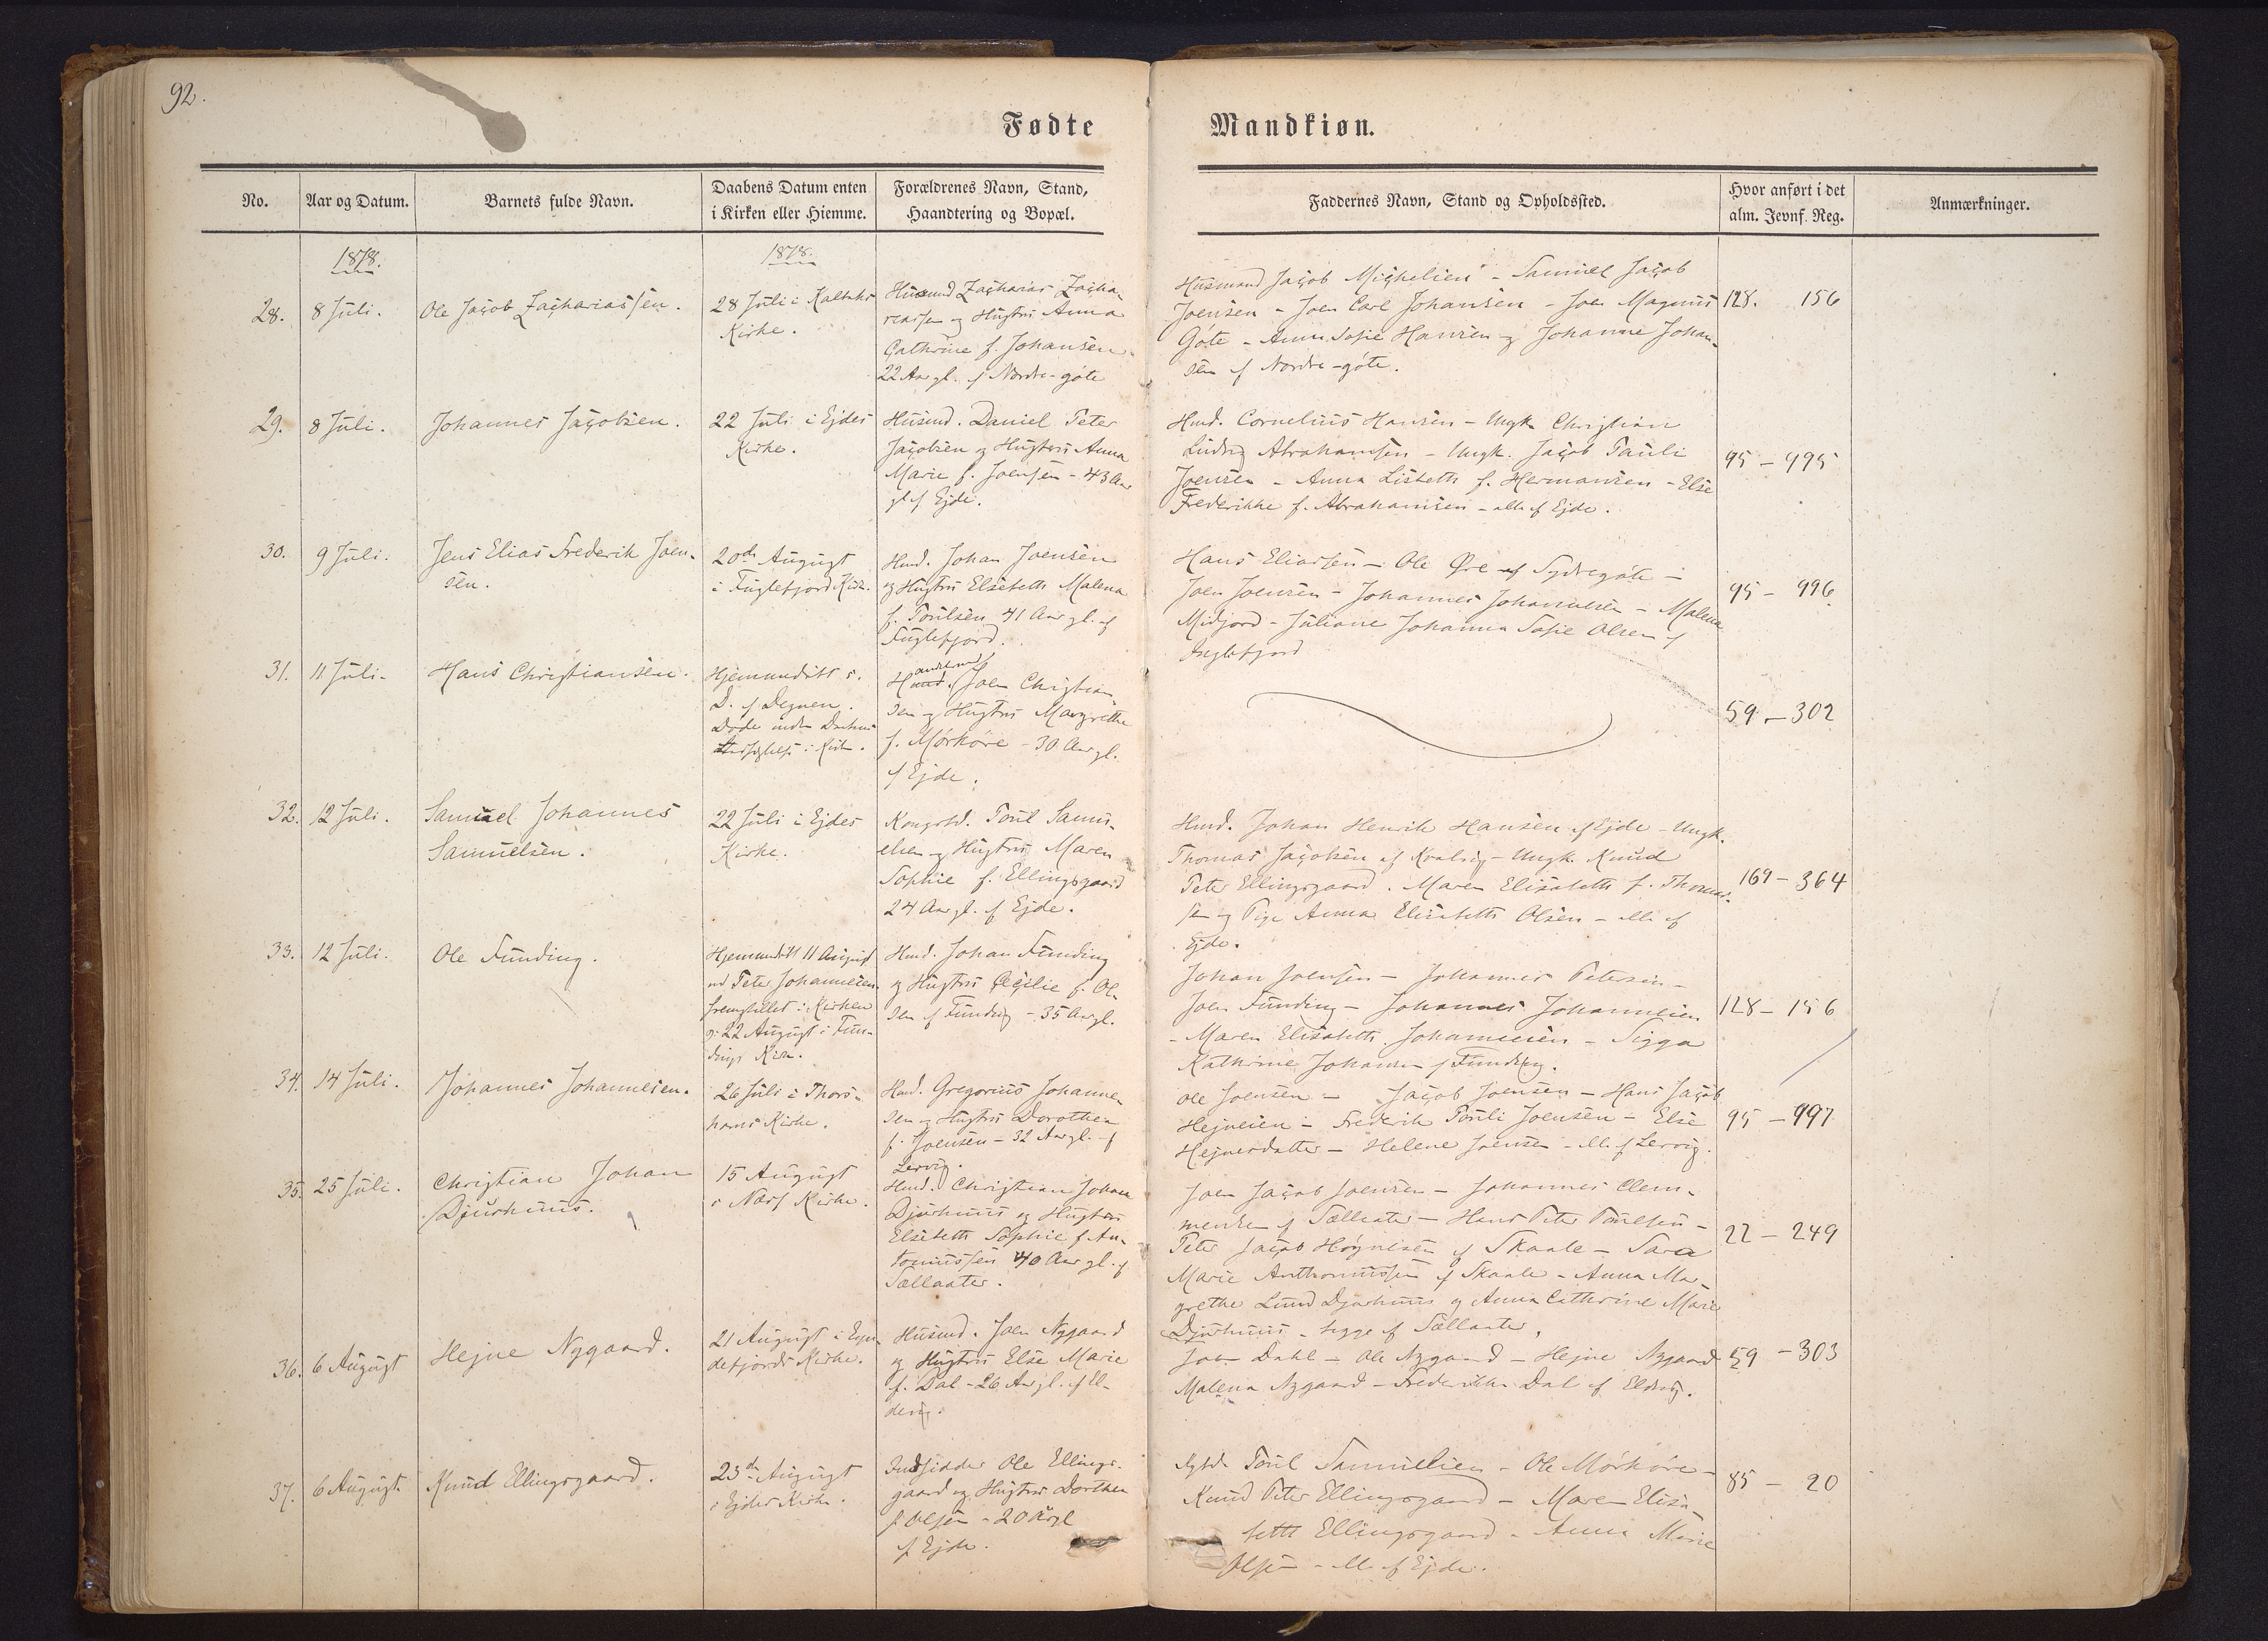 92.
Fødte
Mandkiøn.
No.
Aar og Datum.
Barnets fulde Navn.
Daabens Datum enten
i Kirken eller Hiemme.
Forældrenes Navn, Stand,
Haandtering og Bopæl.
Faddernes Navn, Stand og Opholdssted.
Hvor anført i det
alm. Jevnf. Reg.
Anmærkninger.
1878.
1878.
28.
8 Juli.
Ole Jacob Zachariassen.
28 Juli i
Kirke.
Husmnd Zacharias Zacha-
riassen og Hustru Anna
Cathrine f. Johansen
22 Aar gl. af Nordre-gøte
Husmand Jacob Michelsen - Samuel Jacob
Joensen - Joen Carl Johansen - Joen Magnus
Gøte - Anna Sofie Hansen og Johanne Johan-
sen af Nordre-gøte.
128. 156
29.
8 Juli.
Johannes Jacobsen.
22 Juli i Ejdes
Kirke.
Husmd. Daniel Peter
Jacobsen og Hustru Anna
Marie f. Joensen - 43 Aar
gl. af Ejde.
Hmd. Cornelius Hansen - Ungk. Christian
Ludvig Abrahamsen - Ungk. Jacob Pauli
Joensen - Anna Lisbeth f. Hermansen - Else
Frederikke f. Abrahamsen - alle af Ejde.
95 - 995
30.
9 Juli.
Jens Elias Frederik Joen-
sen.
20de August
i Fuglefjord Kirke.
Hmd. Johan Joensen
og Hustru Elsebeth Malena
f. Poulsen 41 Aar gl. af
Fuglefjord.
Hans Eliassen - Ole Øre af Sydregøte -
Joen Joensen - Johannes Johannesen - Malena
Midjord - Juliane Johanna Sofie Olsen af
Fuglefjord
95 - 996
31.
11 Juli.
Hans Christiansen.
Hjemmedøbt s.
D. af Degnen.
Døde inden
i Kirken.
Hmd. Joen Christian-
sen og Hustru Margrethe
f. Mørkøre - 30 Aar gl.
af Ejde.
59 - 302
32.
12 Juli.
Samuel Johannes
Samuelsen.
22 Juli i Ejdes
Kirke.
Kongsbd. Poul Samu-
elsen og Hustru Maren
Sophie f. Ellingsgaard
24 Aar gl. af Ejde.
Hmd. Johan Henrik Hansen af Ejde - Ungk.
Thomas Jacobsen af Kvalvig - Ungk. Knud
Peter Ellingsgaard. Maren Elisabeth f. Thomas-
sen og Pige Anna Elisabeth Olsen - alle af
Ejde.
169 - 364
33.
12 Juli.
Ole Funding.
Hjemmedøbt 11 August
ved Peter Johannesen
fremstillet i Kirken
22 August i Fun-
dings Kirke.
Hmd. Johan Funding
og Hustru Cecilie f. Ol-
sen af Funding - 35 Aar gl.
Johan Joensen - Johannes Petersen -
Joen Funding - Johannes Johannesen
- Maren Elisabeth Johannesen - Sigga
Kathrine Johansen af Funding.
128 - 156
34.
14 Juli.
Johannes Johannesen.
26 Juli i Thors-
havns Kirke.
Hmd. Gregorius Johanne-
sen og Hustru Dorothea
f. Joensen - 32 Aar gl. af
Lervig.
Ole Joensen - Jacob Joensen - Hans Jacob
Hejnesen - Frederik Pouli Joensen - Else
Hejnesdatter - Helene Joensen - alle af Lervig.
95 - 997
35.
25 Juli.
Christian Johan
Djurhuus.
15 August
i Næs Kirke.
Hmd. Christian Johan
Djurhuus og Hustru
Elsebeth Sophie f. An-
toniussen 40 Aar gl. af
Sællaater.
Joen Jacob Joensen - Johannes Clem-
mensen af Sællaater - Hans Peter Poulsen -
Peter Jacob Høgnesen af Skaale - Sara
Marie Anthoniussen af Skaale - Anna Ma-
grethe Lund Djurhuus og Anna Cathrine Marie
Djurhuus - begge af Sællaater.
22 - 249
36.
6 August
Hejne Nygaard.
21 August i Fun-
defjords Kirke.
Husmd. Joen Nygaard
og Hustru Else Marie
f. Dal - 26 Aar gl. af El-
devig.
Joen Dahl - Ole Nygaard - Hejne Nygaard
Malena Nygaard - Frederikke Dal af Eldevig.
59 - 303
37.
6 August
Knud Ellingsgaard.
23de August
i Ejdes Kirke.
Indsidder Ole Ellings-
gaard og Hustru Dorthea
f. Olsen - 20 Aar gl
af Ejde.
Poul Samuelsen - Ole Mørkøre -
Knud Peter Ellingsgaard - Maren Elisa-
beth Ellingsgaard - Anna Marie
Olsen - alle af Ejde.
85 - 20